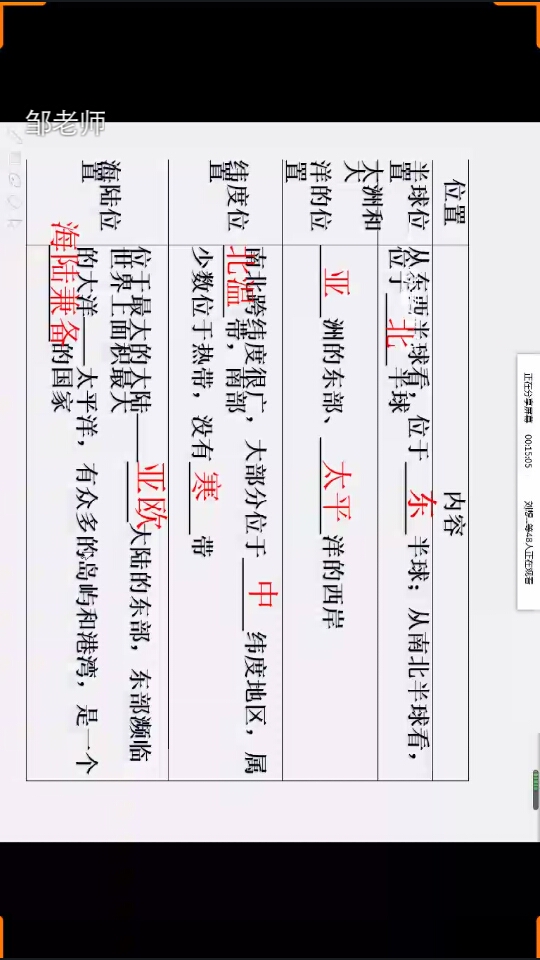 邹老师
正在分享屏幕 00:15:05
等48人正在观看
位置 内容
半球位置
从东西半球看，位于 东 半球；从南北半球看，
位于 北 半球
大洲和大洋的位置
亚 洲的东部、 太平 洋的西岸
纬度位置
南北跨纬度很广，大部分位于 中 纬度地区，属
北温 带，南部
少数位于热带，没有 寒 带
海陆位置
位于最大的大陆——亚欧大陆的东部，东部濒临
世界上面积最大
的大洋——太平洋，有众多的岛屿和港湾，是一个
海陆兼备 的国家